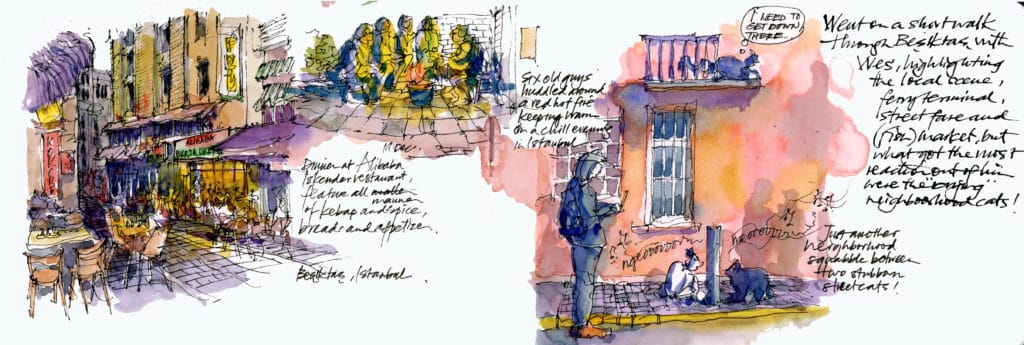 Dinner at Alibaba
Iskender restaurant,
feature all manner
of kebap and spice,
breads and appetizer.
Besiktas, Istanbul
Six old guys
huddled around
a red hot fire
keeping warm
on a chill evening
in Istanbul
I NEED TO
GET DOWN
THERE...
ngeooooorrn
neooooorrrn
Went on a short walk
through Besiktas with
Wes, highlighting
the local scene,
ferry terminal,
street fare and
(fish) market, but
what got the most
reaction out of him
were the
neighborhood cats!
Just another
neighborhood
squabble between
two stubborn
street cats!